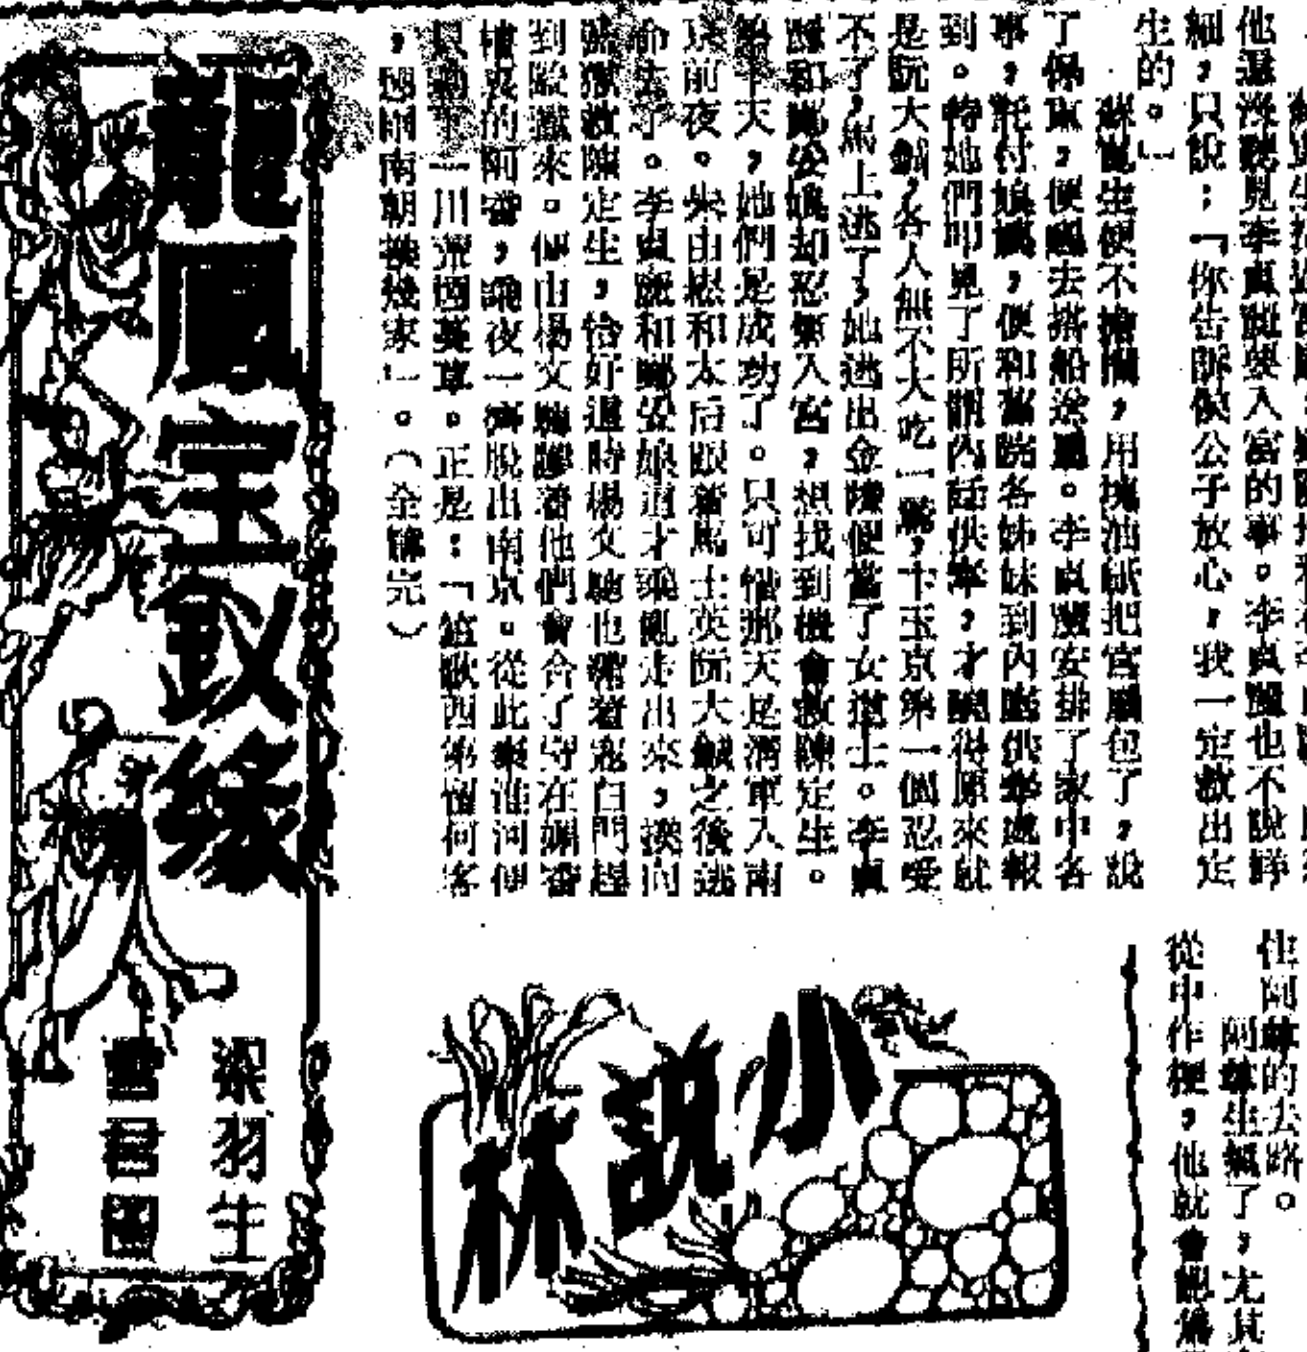 他還沒聽見李貞麗要入宮的事。李貞麗也不說詳
細,只說:「你告訴侯公子放心,我一定救出定
生的。」
蘇崑生便不擔擱,用塊油紙把宮扇包了,說
了佩東,便去搭船送扇。李貞麗安排了家中各
事,託付,便和舊院各姊妹到內庭供奉處報
到。待她們叩見了所謂內廷供奉,才曉得原來就
是阮大鋮,各人無不大吃一驚,卞玉京第一個忍受
不了,馬上逃了,她逃出金陵便當了女道士。李貞
麗和鄭妥娘却忍氣入宮,想找到機會救陳定生。
第十天,她們是成功了。只可惜那天是清軍入南
京前夜。朱由崧和太后跟着馬士英阮大鋮之後逃
命去了。李貞麗和鄭妥娘這才乘亂走出來,摸向
監獄救陳定生,恰好這時楊文驄也帶着寇白門趕
到監獄來。便由楊文驄帶着他們會合了守在媚香
樓裏的阿香,乘夜一齊脫出南京。從此秦淮河便
只剩下一川荒烟蔓草。正是:「笙歌西第留何客
,烟雨南朝換幾家」。(全篇完)
龍鳳宝釵緣
梁羽生
雲君圖
小說林
住阿的去路。
阿生氣了,尤其
從中作梗,他就會